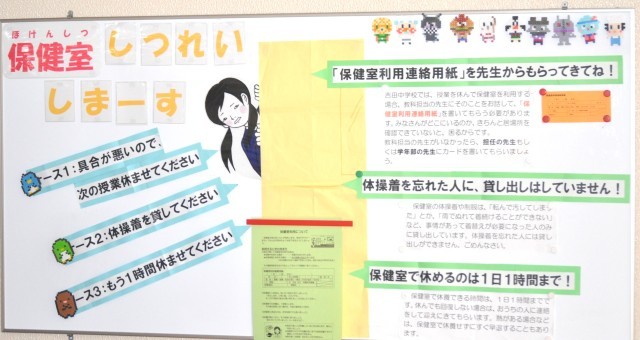 ほけんしつ
保健室
しつれい
しまーす
ケース1：具合が悪いので、
次の授業休ませてください
ケース2：体操着を貸してください
ケース3：もう1時間休ませてください
「保健室利用連絡用紙」を先生からもらってきてね！
吉田中学校では、授業を休んで保健室を利用する
場合、教科担当の先生にそのことをお話して、「保
健室利用連絡用紙」を書いてもらう必要がありま
す。みなさんがどこにいるのか、きちんと居場所を
確認できていないと、困るからです。
教科担当の先生がいなかったら、担任の先生もし
くは学年部の先生にカードを書いてもらいましょ
う。
体操着を忘れた人に、貸し出しはしていません！
保健室の体操着や制服は、「転んで汚してしまし
た」とか、「雨でぬれて着続けることができない」
など、事情があって着替えが必要になった人のみ
に貸し出しています。体操着を忘れた人には貸し
出しができません。ごめんなさい。
保健室で休めるのは1日1時間まで！
保健室で休養できる時間は、1日1時間までで
す。休んでも回復しない場合は、おうちの人に連絡
をして迎えにきてもらいます。熱がある場合など
は、保健室で休養せずにすぐ早退することもあり
ます。